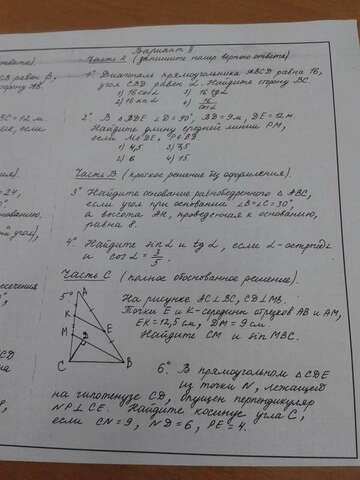 Вариант 8
Часть А (запишите номер верного ответа)
1° Диагональ прямоугольника ABCD равна 16,
угол CBD равен α. Найдите сторону BC.
1) 16 cos α 3) 16 tg α
2) 16 sin α 4) 16/cos α
2° В △BDE ∠D = 90°, BD = 9 м, DE = 12 м
Найдите длину средней линии PM,
если M∈DE, P∈BD
1) 4,5 3) 7,5
2) 6 4) 15
Часть B (краткое решение без оформления).
3° Найдите основание равнобедренного △ ABC,
если угол при основании ∠B=∠C=30°,
а высота AH, проведенная к основанию,
равна 8.
4° Найдите sin α и tg α, если α-острый∠
и cos α = 2/5.
Часть C (полное обоснованное решение).
5°
A
K
E
M
D
C
B
На рисунке AC⊥BC, CD⊥MB.
Точки E и K-середины отрезков AB и AM,
EK=12,5 см, DM=9 см
Найдите CM и sin MBC.
6° В прямоугольном △CDE
из точки N, лежащей
на гипотенузе CD, опущен перпендикуляр
NP⊥CE. Найдите косинус угла C,
если CN=9, ND=6, PE=4.
ответа).
сторону AB.
BC = 12 м
24,
угол),
сечения
CD